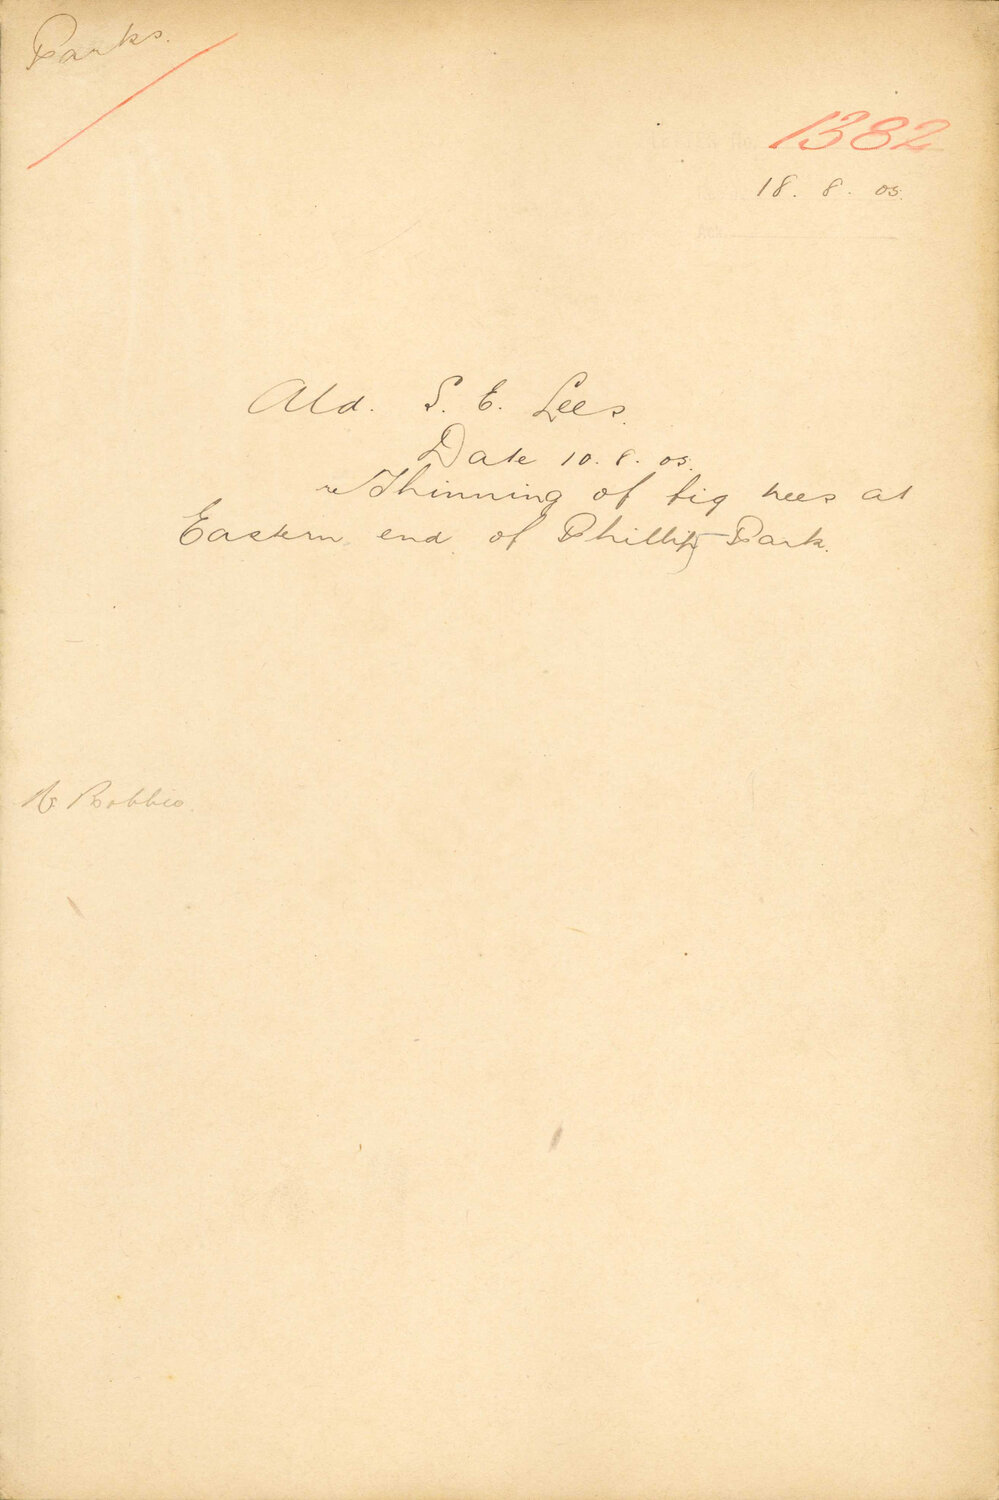 Parks.
1382
18. 8. 05.
Ald. S. E. Lees.
Date 10. 8. 05.
re Thinning of fig trees at
Eastern end of Phillip Park.